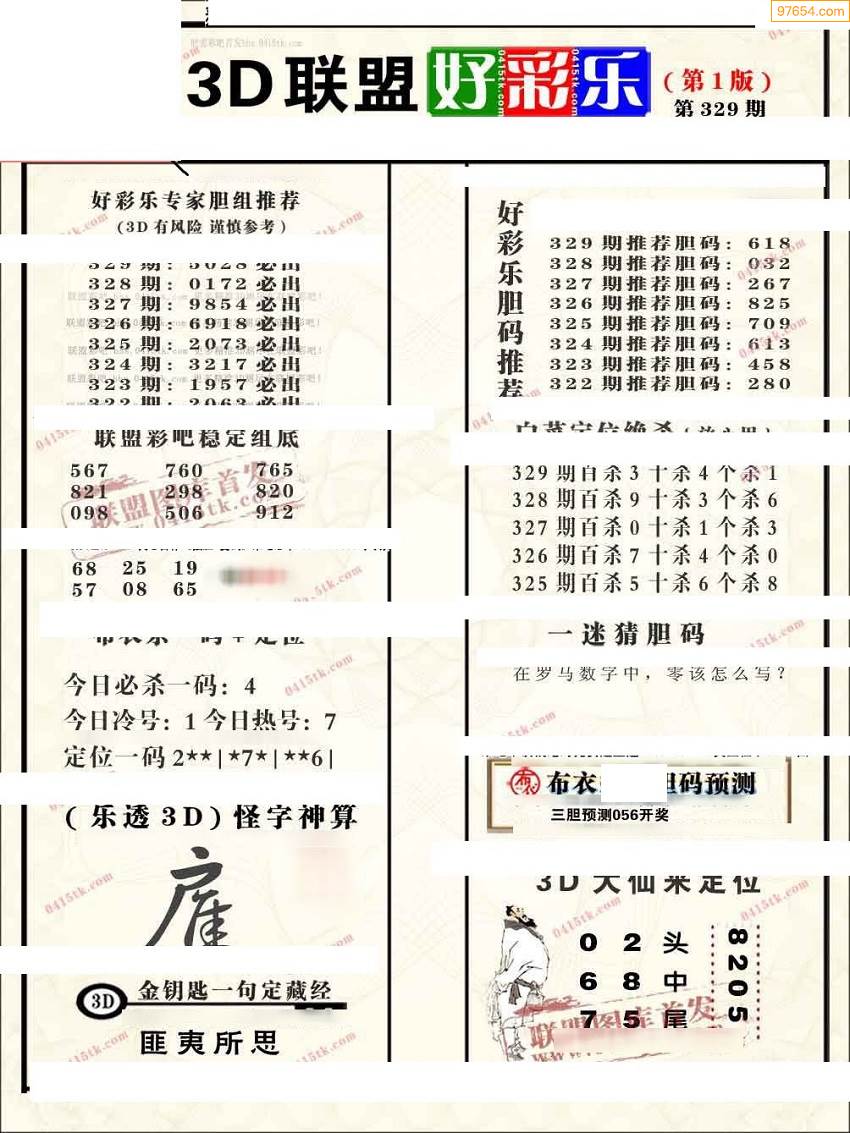 97654.com
3D联盟 好彩乐 (第1版)
第329期
好彩乐专家胆组推荐
(3D有风险 谨慎参考)
329期: 5028必出
328期: 0172必出
327期: 9854必出
326期: 6918必出
325期: 2073必出
324期: 3217必出
323期: 1957必出
322期: 2063必出
联盟彩吧稳定组底
567 760 765
821 298 820
098 506 912
68 25 19
57 08 65
今日必杀一码: 4
今日冷号: 1 今日热号: 7
定位一码 2**|*7*|**6|
(乐透3D)怪字神算
3D 金钥匙一句定藏经
匪夷所思
好彩乐胆码推荐
329期推荐胆码: 618
328期推荐胆码: 032
327期推荐胆码: 267
326期推荐胆码: 825
325期推荐胆码: 709
324期推荐胆码: 613
323期推荐胆码: 458
322期推荐胆码: 280
329期百杀3十杀4个杀1
328期百杀9十杀3个杀6
327期百杀0十杀1个杀3
326期百杀7十杀4个杀0
325期百杀5十杀6个杀8
一迷猜胆码
在罗马数字中，零该怎么写?
布衣 胆码预测
三胆预测056开奖
3D大仙来定位
0 2 头
6 8 中
7 5 尾
8205
联盟图库首发
0415tk.com